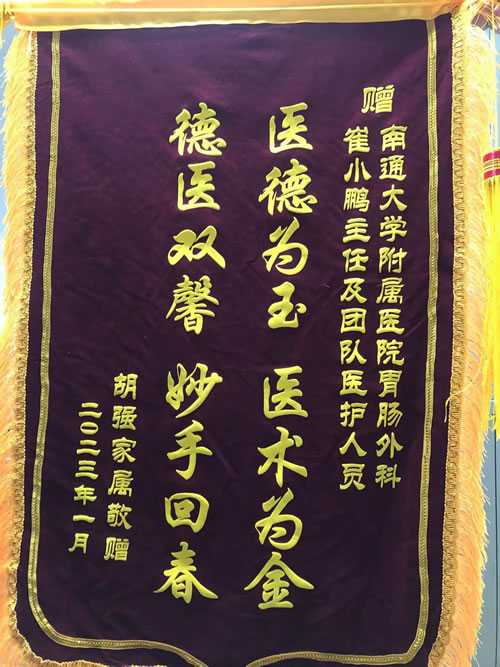 赠 南通大学附属医院胃肠外科
崔小鹏主任及团队医护人员
医德为玉 医术为金
德医双馨 妙手回春
胡强家属敬赠
二〇二三年一月